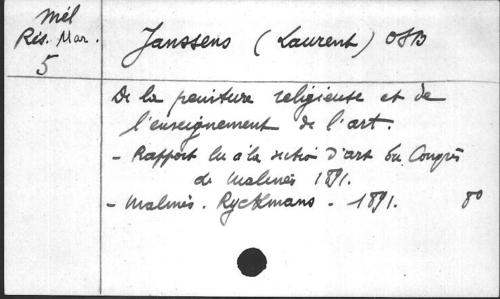 Mél
Rés. Mar.
5
Janssens (Laurent) OSB
De la peinture religieuse et de
l'enseignement de l'art.
- Rapport lu à la section d'art du Congrès
de Malines 1891.
- Malines. Ryckmans - 1891. 8º